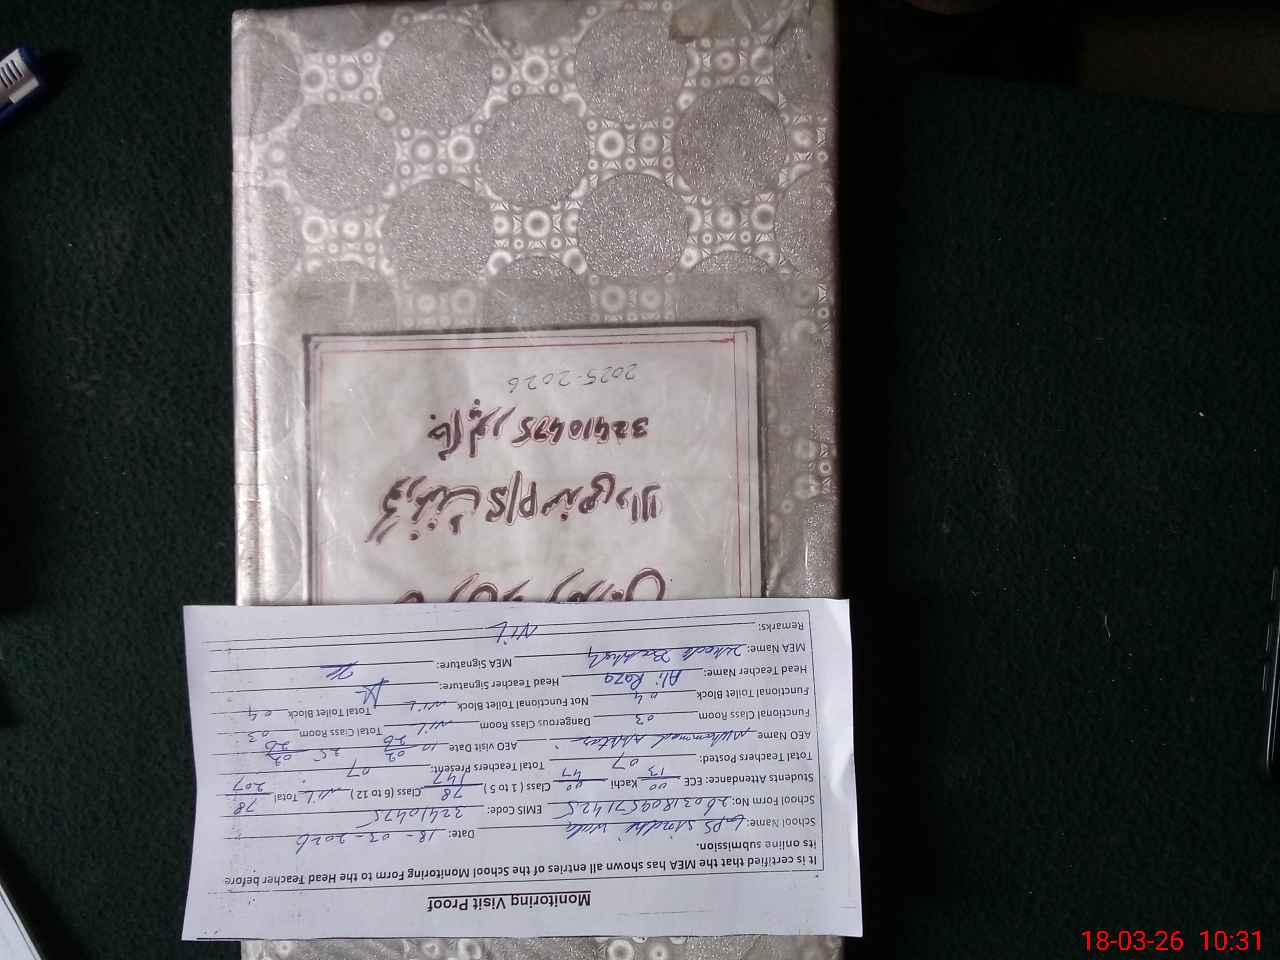 Monitoring Visit Proof
It is certified that the MEA has shown all entries of the School Monitoring Form to the Head Teacher before
its online submission.
School Name: GPS sindhi wala Date: 18-03-2026
School Form No: EMIS Code: 32410475
Students Attendance: ECE 00/13 Kachi 00/47 Class (1 to 5) 78/147 Class (6 to 12) NiL Total 78/207
Total Teachers Posted: 07 Total Teachers Present: 07
AEO Name Muhammad AEO visit Date
Functional Class Room 03 Dangerous Class Room NiL Total Class Room 03
Functional Toilet Block 04 Not Functional Toilet Block NiL Total Toilet Block 04
Head Teacher Name: Ali Raza Head Teacher Signature:
MEA Name: MEA Signature:
Remarks: NiL
گورنمنٹ P/S سندھی والا
32410475
2025-2026
18-03-26 10:31